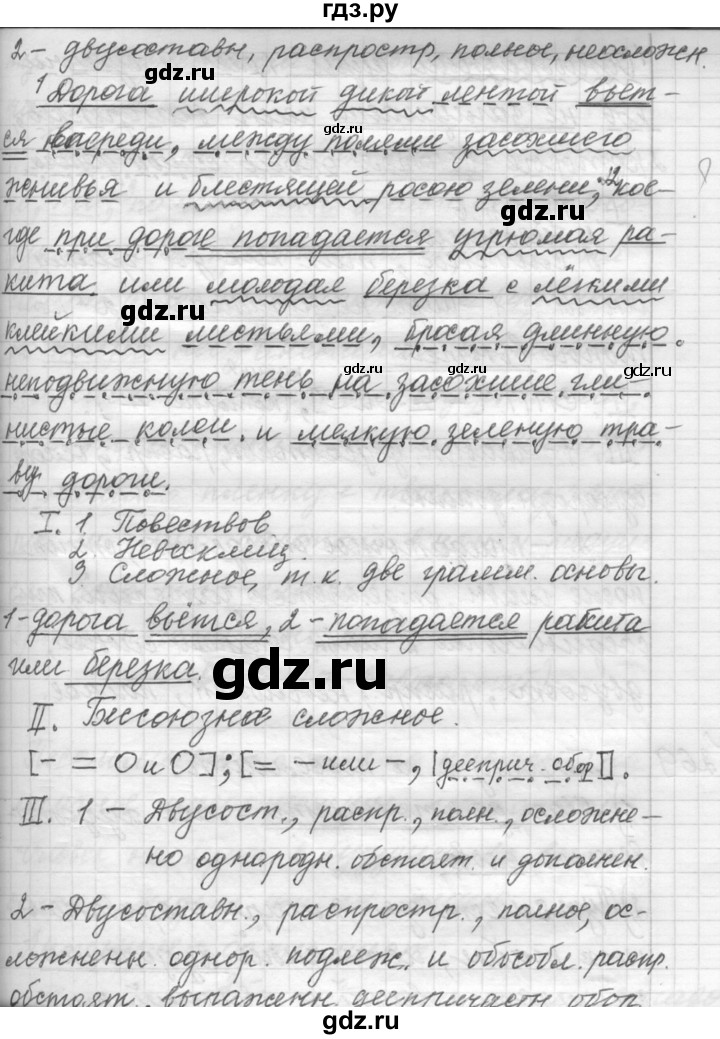 гдз.ру
2 - двусоставн, распростр, полное, неосложн.
1 Дорога широкой дикой лентой вьет-
ся впереди, между полями засохшего
жнивья и блестящей росою зелени; 2 кое-
где при дороге попадается угрюмая ра-
кита или молодая березка с лёгкими
клейкими листьями, бросая длинную
неподвижную тень на засохшие гли-
нистые колеи и мелкую зеленую тра-
ву дороги.
I. 1 Повествов
2. Невосклиц.
3 Сложное, т.к. две грамм. основы.
1 - дорога вьётся, 2 - попадается ракита
или березка.
II. Бессоюзное сложное.
[- = O и O]; [= - или -, |дееприч. обор|].
III. 1 - Двусост., распр., полн., осложне-
но однородн. обстоят. и дополнен.
2 - Двусоставн., распростр., полное, ос-
ложнены однор. подлеж. и обособл. распр.
обстоят., выраженн деепричастн обор
gdz.ru
gdz.ru
gdz.ru
gdz.ru
gdz.ru
gdz.ru
gdz.ru
gdz.ru
gdz.ru
gdz.ru
gdz.ru
gdz.ru